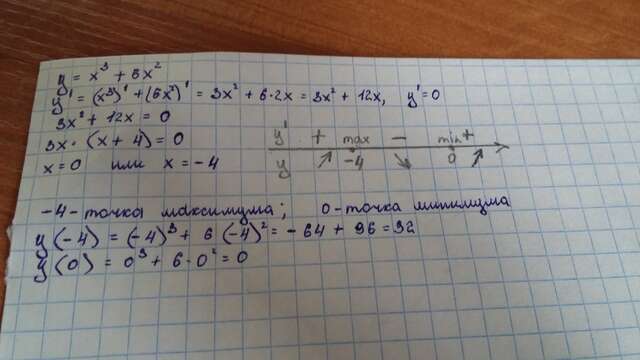 y = x³ + 6x²
y' = (x³)' + (6x²)' = 3x² + 6·2x = 3x² + 12x, y' = 0
3x² + 12x = 0
3x · (x + 4) = 0
x = 0 или x = -4
y' + max - min +
y ↗ -4 ↘ 0 ↗
-4 - точка максимума; 0 - точка минимума
y(-4) = (-4)³ + 6(-4)² = -64 + 96 = 32
y(0) = 0³ + 6·0² = 0